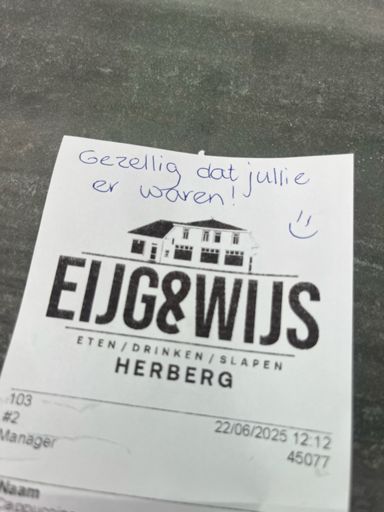 Gezellig dat jullie
er waren!
EIJG&WIJS
ETEN/DRINKEN/SLAPEN
HERBERG
103
#2
22/06/2025 12:12
Manager
45077
Naam